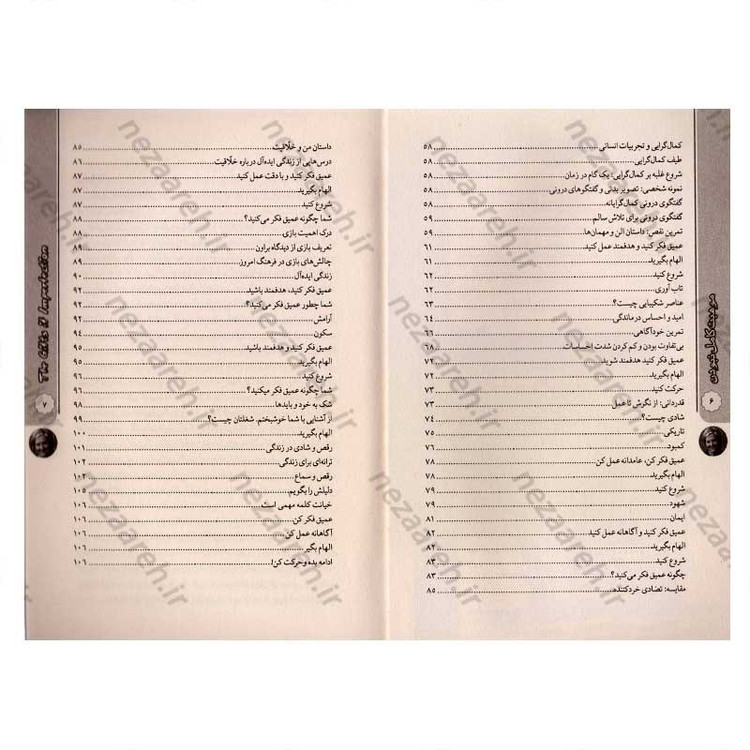 کمال‌گرایی و تجربیات انسانی ۵۸
طیف کمال‌گرایی ۵۸
شروع غلبه بر کمال‌گرایی: یک گام در زمان ۵۸
نمونه شخصی: تصویر بدنی و گفتگوهای درونی ۵۸
گفتگوی درونی کمال‌گرایانه ۵۹
گفتگوی درونی برای تلاش سالم ۵۹
تمرین نقص: داستان الن و مهمان‌ها ۵۹
عمیق فکر کنید و هدفمند عمل کنید ۶۱
الهام بگیرید ۶۱
شروع کنید ۶۲
تاب آوری ۶۲
عناصر شکیبایی چیست؟ ۶۳
امید و احساس درماندگی ۶۴
تمرین خودآگاهی ۶۶
بی‌تفاوت بودن و کم کردن شدت احساسات ۶۸
عمیق فکر کنید هدفمند شوید ۷۲
الهام بگیرید ۷۲
حرکت کنید ۷۳
قدردانی: از نگرش تا عمل ۷۳
شادی چیست؟ ۷۴
تاریکی ۷۵
کمبود ۷۶
عمیق فکر کن، عامدانه عمل کن ۷۸
الهام بگیرید ۷۸
شروع کنید ۷۹
شهود ۷۹
ایمان ۸۱
عمیق فکر کنید و آگاهانه عمل کنید ۸۲
الهام بگیرید ۸۲
شروع کنید ۸۳
چگونه عمیق فکر می‌کنید؟ ۸۳
مقایسه: تضادی خردکننده ۸۵
۶
داستان من و خلاقیت ۸۵
درس‌هایی از زندگی ایده‌آل درباره خلاقیت ۸۶
عمیق فکر کنید و با دقت عمل کنید ۸۷
الهام بگیرید ۸۷
شروع کنید ۸۷
شما چگونه عمیق فکر می‌کنید؟ ۸۸
درک اهمیت بازی ۸۸
تعریف بازی از دیدگاه براون ۸۹
چالش‌های بازی در فرهنگ امروز ۸۹
زندگی ایده‌آل ۹۰
عمیق فکر کنید، هدفمند باشید ۹۲
شما چطور عمیق فکر می‌کنید؟ ۹۲
آرامش ۹۲
سکون ۹۴
عمیق فکر کنید و هدفمند باشید ۹۵
الهام بگیرید ۹۵
شروع کنید ۹۶
شما چگونه عمیق فکر میکنید؟ ۹۶
شک به خود و بایدها ۹۸
از آشنایی با شما خوشبختم. شغلتان چیست؟ ۹۹
الهام بگیرید ۱۰۰
رقص و شادی در زندگی ۱۰۱
ترانه‌ای برای زندگی ۱۰۲
رقص و سماع ۱۰۳
دلیلش را بگویم ۱۰۵
خیانت کلمه مهمی است ۱۰۶
عمیق فکر کن ۱۰۶
آگاهانه عمل کن ۱۰۶
الهام بگیر ۱۰۶
ادامه بده و حرکت کن! ۱۰۶
The Gifts of Imperfection
۷
nezaareh.ir
nezaareh.ir
nezaareh.ir
nezaareh.ir
nezaareh.ir
nezaareh.ir
nezaareh.ir
nezaareh.ir
nezaareh.ir